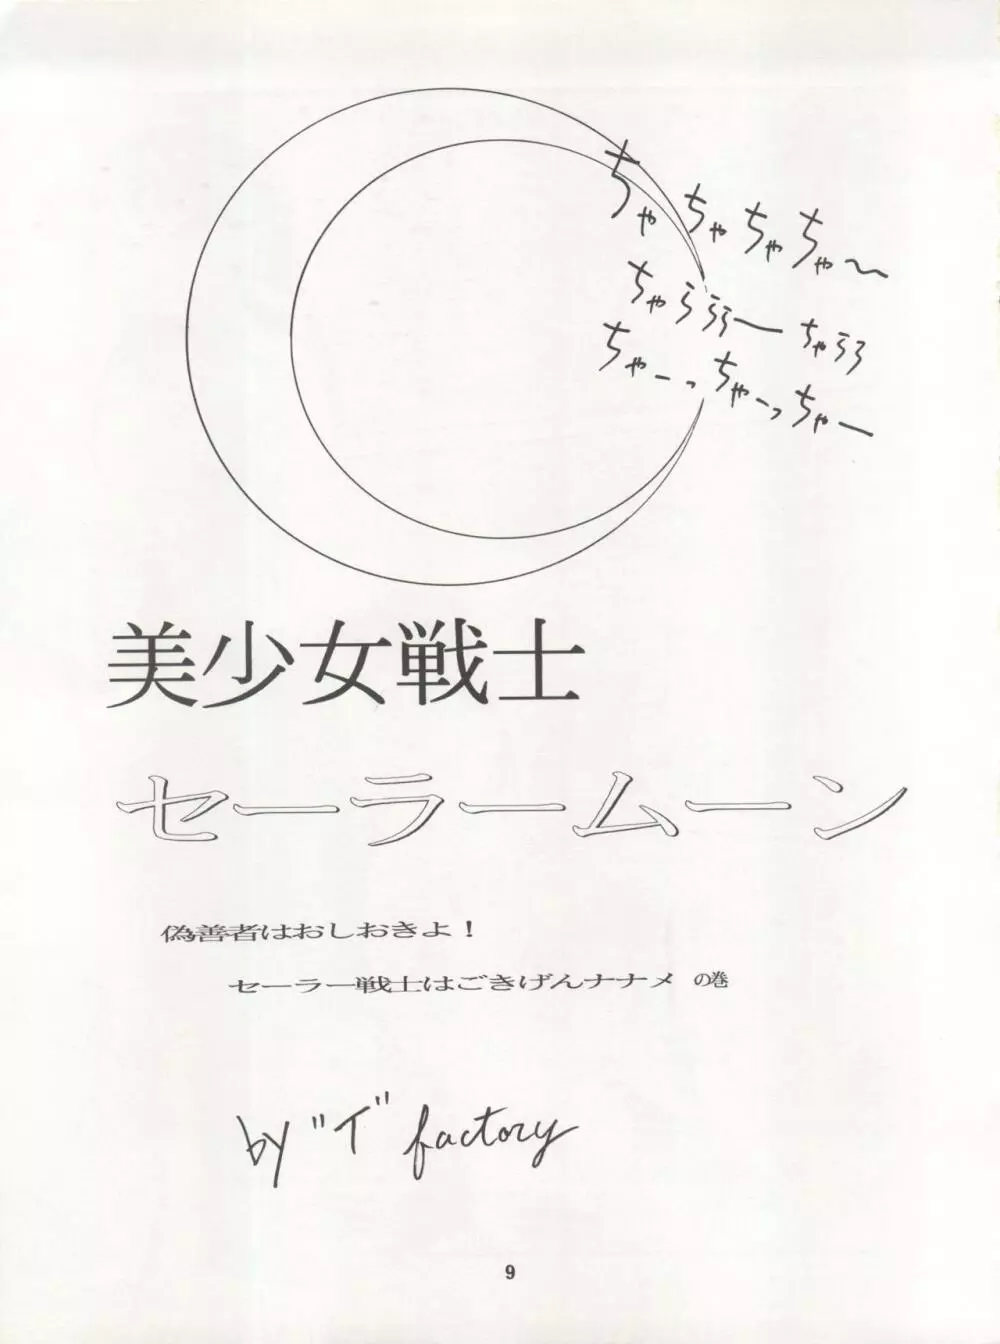 ちゃちゃちゃちゃ〜
ちゃららら〜ちゃらら
ちゃーっちゃーっちゃー
美少女戦士
セーラームーン
偽善者はおしおきよ！
セーラー戦士はごきげんナナメ の巻
by "イ" factory
9